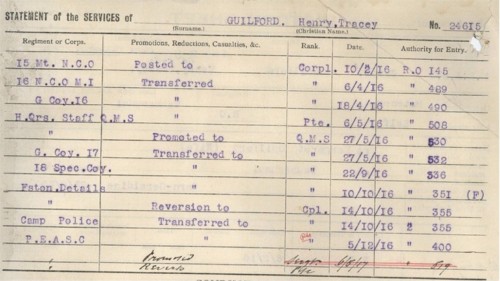 STATEMENT of the SERVICES of GUILFORD. Henry,Tracey No. 24615
(Surname.) (Christian Name.)
Regiment or Corps. Promotions, Reductions, Casualties, &c. Rank. Date. Authority for Entry.
15 Mt. N.C.O Posted to Corpl. 10/2/16 R.O 145
16 N.C.O M.I Transferred " 6/4/16 " 469
G Coy.16 " " 18/4/16 " 490
H.Qrs. Staff Q.M.S " Pte. 6/5/16 " 508
" Promoted to Q.M.S 27/5/16 " 530
G. Coy. 17 Transferred to " 27/5/16 " 532
18 Spec.Coy. " " 22/9/16 " 336
Fston.Details " " 10/10/16 " 351 (F)
" Reversion to Cpl. 14/10/16 " 355
Camp Police Transferred to " 14/10/16 2 355
P.E.A.S.C " " 5/12/16 " 400
" Promoted 6/8/17 "
Reverts